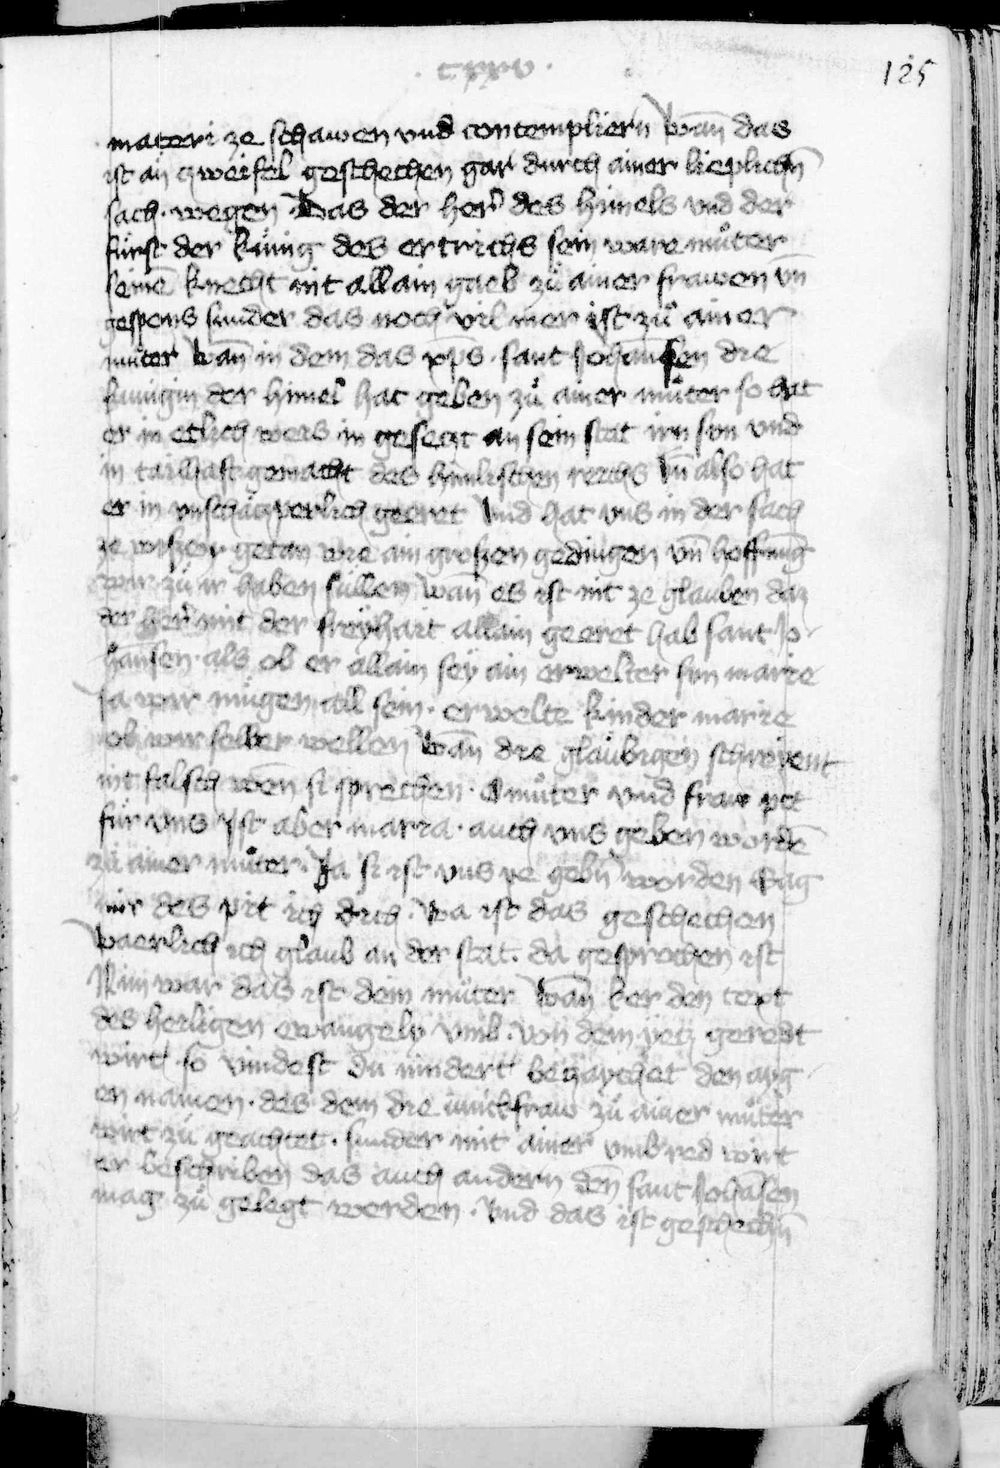 · cxxv ·
125
materi ze schawen vnd contempliern Wan̄ das
ist ain zweifel geschechen gar durch ainer lieplichn̄
sach · wegen · Das der her̄ des himels vnd der
fürst der küing des ertrichs sein ware můter
seinē knecht nit allain gaeb zů ainer frawen vn̄
gespons sunder das noch vil mer ist zů ainer
můter Wan̄ in dem das xp̄s · sant Johan̄sen die
kuinigin der himel hat geben zů ainer můter so hat
er in etlich weis in gesetzt an sein stat irn sun vnd
in tailhaft gemacht des himlischen reichs Vn̄ also hat
er in vnschäczperlich geeret Vnd hat vns in der sach
ze wissen getan wie ain grossen gedingen vn̄ hoffnung
wir zů ir haben süllen Wan̄ es ist nit ze glauben daz
der her̄ mit der freyhait allain geeret hab sant Jo
han̄sen · als ob er allain sey ain erwelter sun marie
Ja wir mügen all sein · erwelte kinder marie
ob wir selber wellen Wan̄ die glaübigen schreyent
nit falsch wen̄ si sprechen · O můter vnd fraw pit
für vns Ist aber maria · auch vns geben wordē
zů ainer můter · Ja si ist vns ye gebn̄ worden Sag
mir des pit ich dich · Wa ist das geschechen
Waerlich ich glaub an der stat · da gesprochen ist
Nim war das ist dein můter Wan̄ ker den text
des heiligen ewangely vmb · von dem yetz geredt
wirt so vindest du nindert bezaychet den ayg
en namen · des dem die iunckfraw zů ainer můter
wirt zů geachtet · sunder mit ainer vmbred wirt
er beschriben das auch andern den̄ sant Johāsen
mag zů gelegt werden · Vnd das ist geschechn̄